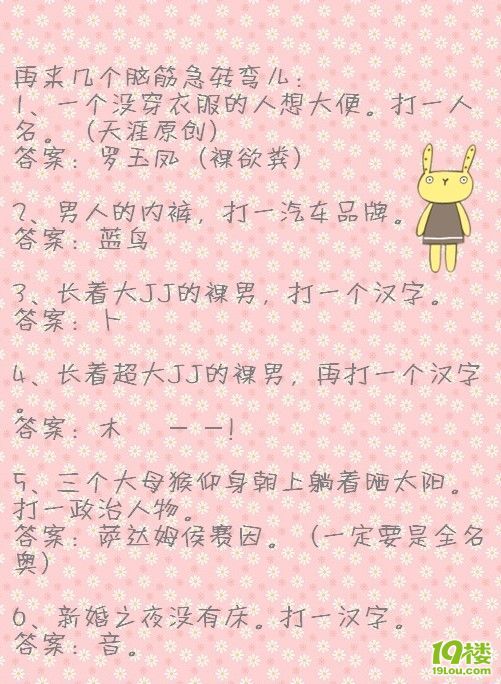 再来几个脑筋急转弯儿：
1、一个没穿衣服的人想大便。打一人
名。（天涯原创）
答案：罗玉凤（裸欲粪）
2、男人的内裤，打一汽车品牌。
答案：蓝鸟
3、长着大JJ的裸男，打一个汉字。
答案：卜
4、长着超大JJ的裸男，再打一个汉字
。
答案：木 －－！
5、三个大母猴仰身朝上躺着晒太阳。
打一政治人物。
答案：萨达姆侯赛因。（一定要是全名
奥）
6、新婚之夜没有床。打一汉字。
答案：音。
19楼
19lou.com